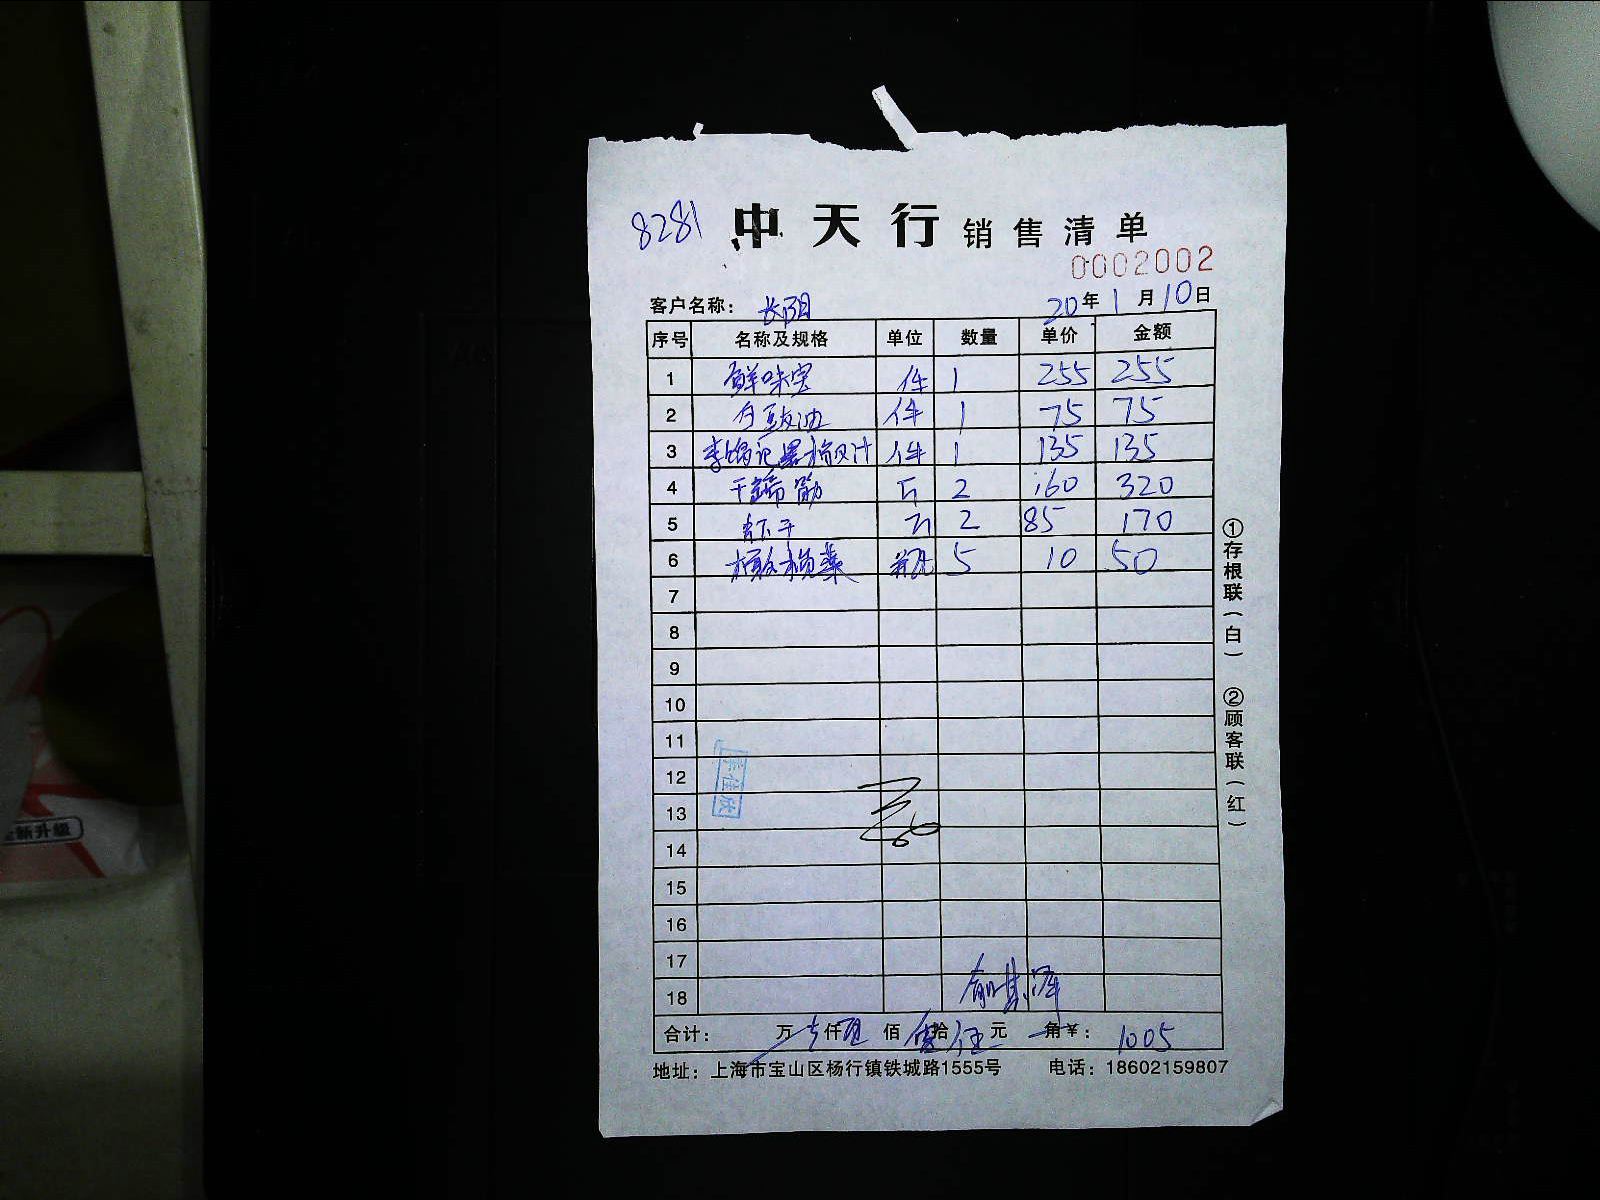 8281 中天行 销售清单
0002002
客户名称: 长阳 20年1月10日
序号 名称及规格 单位 数量 单价 金额
1 鲜味宝 件 1 255 255
2 豉油 件 1 75 75
3 李锦记 汁 件 1 135 135
4 干蹄筋 斤 2 160 320
5 虾干 斤 2 85 170
6 瓶 5 10 50
7
8
9
10
11
12
13
14
15
16
17
18
合计: 万 仟 佰 拾 伍 元 角 ¥: 1005
地址: 上海市宝山区杨行镇铁城路1555号 电话: 18602159807
①存根联(白) ②顾客联(红)
新升级